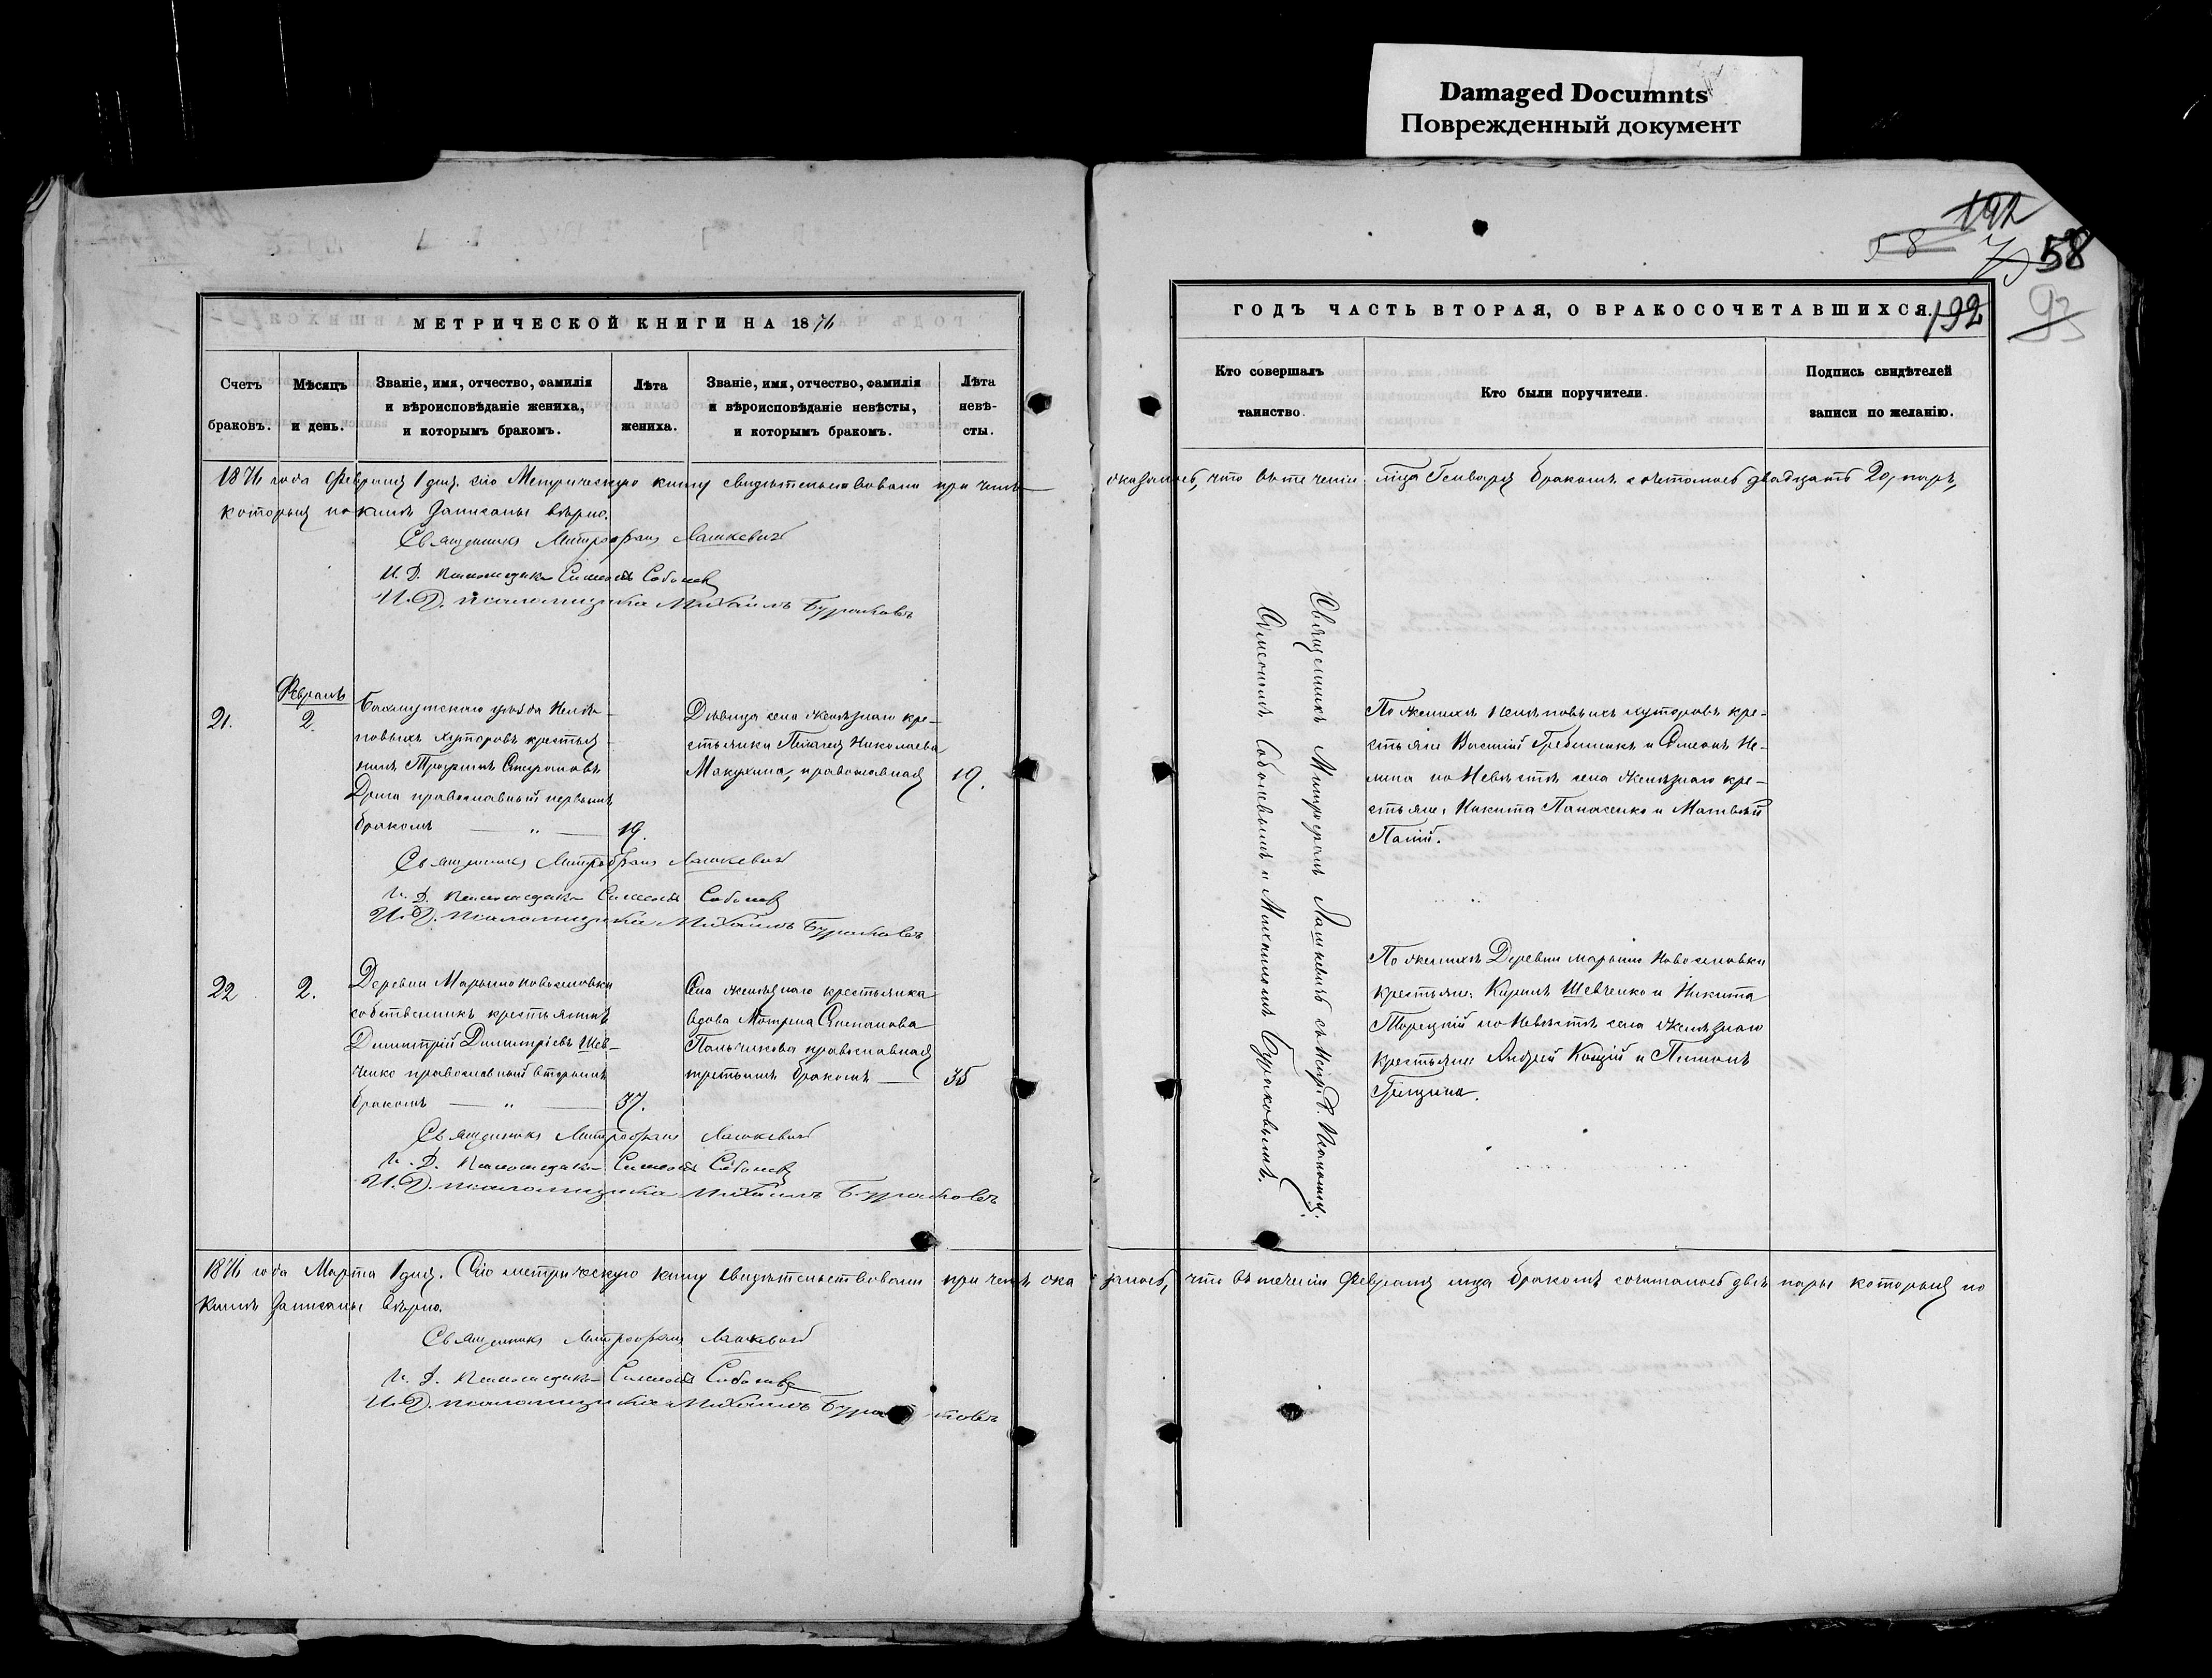 Damaged Documnts
Поврежденный документ
192
58
58
93
МЕТРИЧЕСКОЙ КНИГИ НА 1876
Счетъ браковъ.
Мѣсяцъ и день.
Званіе, имя, отчество, фамилія
и вѣроисповѣданіе жениха,
и которымъ бракомъ.
Лѣта
жениха.
Званіе, имя, отчество, фамилія
и вѣроисповѣданіе невѣсты,
и которымъ бракомъ.
Лѣта
невѣ-
сты.
ГОДЪ ЧАСТЬ ВТОРАЯ, О БРАКОСОЧЕТАВШИХСЯ.
192
Кто совершалъ
таинство.
Кто были поручители.
Подпись свидѣтелей
записи по желанію.
1876 года Февраля 1 дня. сію Метрическую книгу свидѣтельствовали при чемъ оказалось, что въ теченіи мца Генваря бракомъ сочеталось двадцать 20, паръ,
которыя по книгѣ записаны вѣрно.
Священникъ Митрофанъ Лашкевичъ
И. Д. Псаломщика Симеонъ Соболевъ
И. Д. псаломщика Михаилъ Бураковъ
21.
Февраль
2.
Бахмутскаго уѣзда
повыхъ хуторовъ крестья-
нинъ Трофимъ Стефановъ
Дрига православный первымъ
бракомъ — " —
19.
Дѣвица села Желѣзнаго кре-
стьянка Пелагея Николаева
Макухина, православная
19.
По женихѣ хуторовъ кре-
стьяне Василій Гребенникъ и Симеонъ Не-
липа по Невѣстѣ села Желѣзнаго кре-
стьяне, Никита Панасенко и Матвѣй
Палій.
Священникъ Митрофанъ Лашкевичъ
И. Д. Псаломщика Симеонъ Соболевъ
И. Д. псаломщика Михаилъ Бураковъ
22
2.
Деревни Марьино Новоселовки
собственникъ крестьянинъ
Димитрій Димитріевъ Шев-
ченко православный вторымъ
бракомъ — " —
37.
Села Желѣзнаго крестьянка
вдова Мотрона Степанова
Пальчикова православная
третьимъ бракомъ —
35
По женихѣ Деревни Марьино Новоселовки
крестьяне: Кирилъ Шевченко и Никита
Торецкій по Невѣстѣ села Желѣзнаго
крестьяне Андрей Коцій и Пимонъ
Грицина.
Священникъ Митрофанъ Лашкевичъ
И. Д. Псаломщика Симеонъ Соболевъ
И. Д. псаломщика Михаилъ Бураковъ
Священникъ Митрофанъ Лашкевичъ съ Испр. д. Псаломщ.
Симеономъ Соболевымъ и Михаиломъ Бураковымъ.
1876 года Марта 1 дня. Сію метрическую книгу свидѣтельствовали при чемъ оказалось, что въ теченіи Февраля мца бракомъ сочиталось двѣ пары которыя по
книгѣ записаны вѣрно.
Священникъ Митрофанъ Лашкевичъ
И. Д. Псаломщика Симеонъ Соболевъ
И. Д. псаломщика Михаилъ Бураковъ